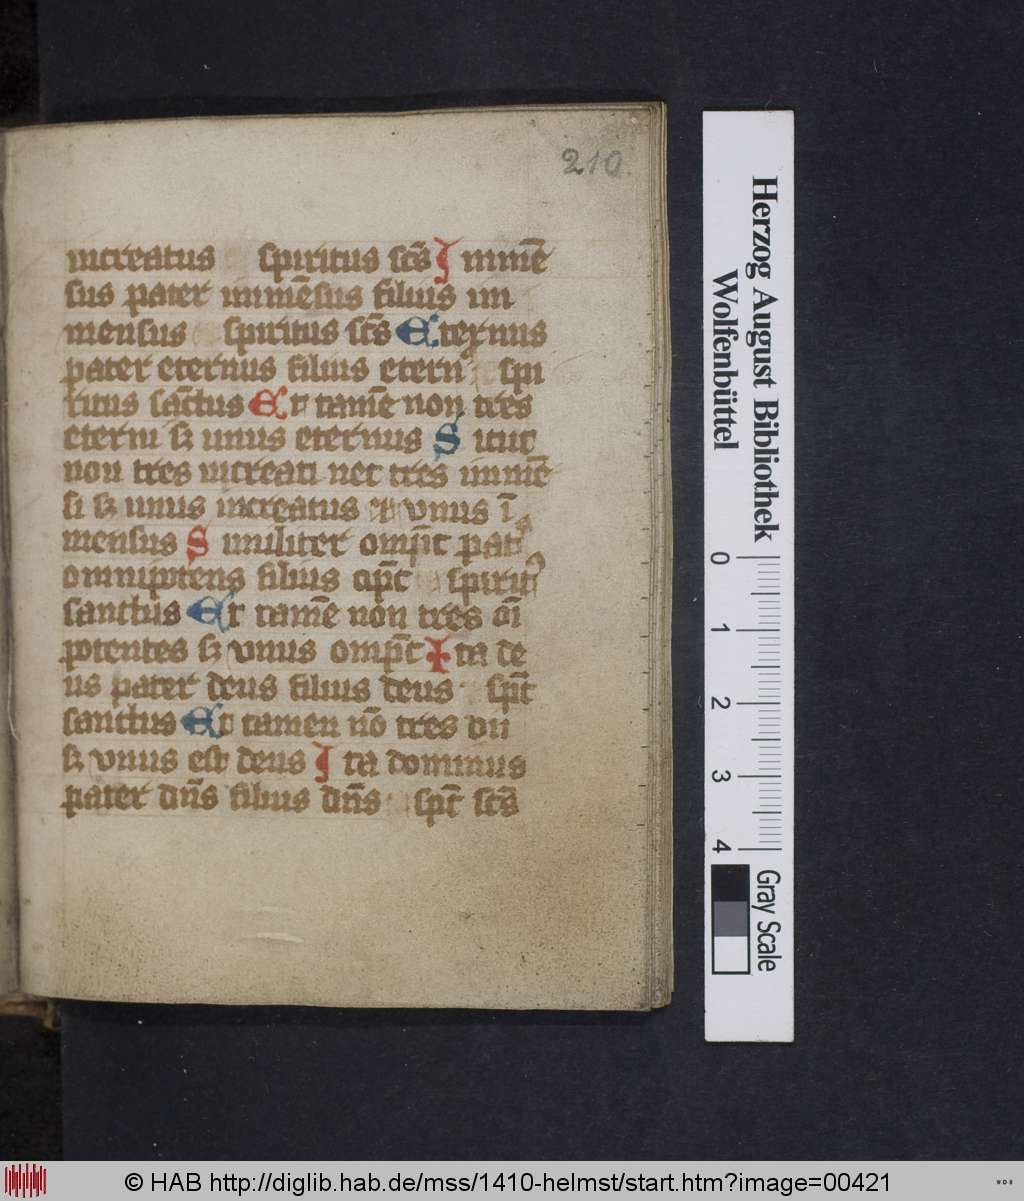 210.
increatus spiritus scs̄ Inmēn
sus pater inmēsus filius in
mensus spiritus scs̄ Eternus
pater eternus filius etern⁹ spi
ritus sāctus Et tamē non tres
eterni sꝫ unus eternus Sicut
non tres increati nec tres inmē
si sꝫ unus increatus et vnus ī
mensus Similiter omp̄c pat
omnipotens filius op̄c spirit⁹
sanctus Et tamē non tres oī
potentes sꝫ vnus omp̄c Ita de
us pater deus filius deus sp̄c
sanctus Et tamen nō tres dii
sꝫ vnus est deus Ita dominus
pater dn̄s filius dn̄s sp̄c scs̄
Herzog August Bibliothek
Wolfenbüttel
0 1 2 3 4
Gray Scale
© HAB http://diglib.hab.de/mss/1410-helmst/start.htm?image=00421